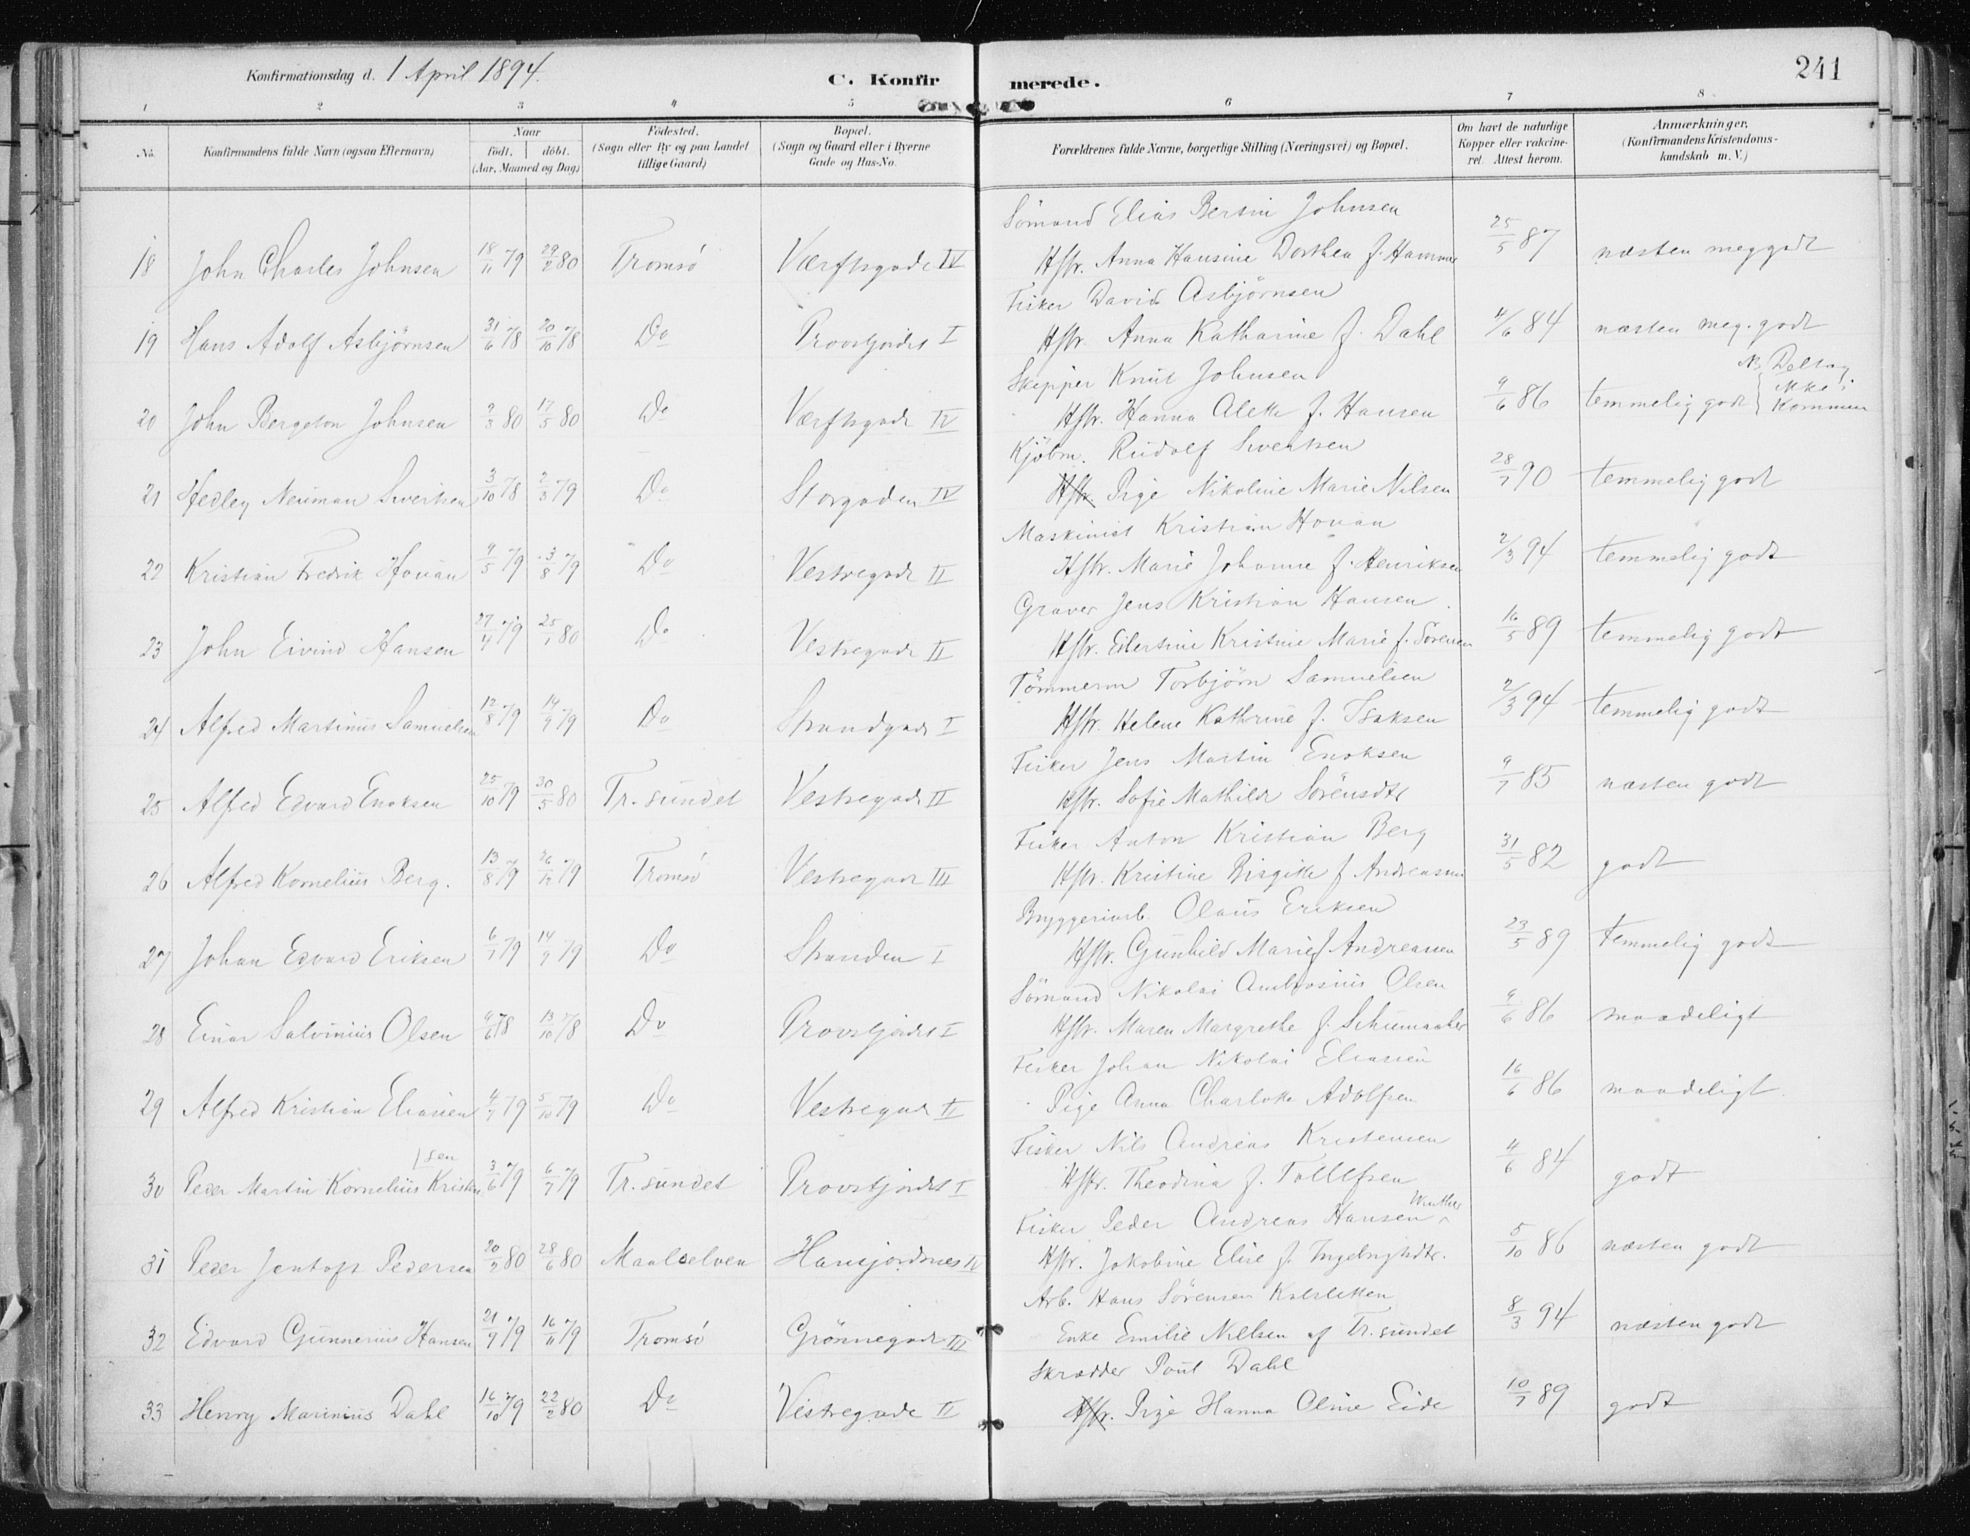 Konfirmationsdag d. 1 April 1894. C. Konfirmerede. 241
1 2 3 4 5 6 7 8
No. Konfirmandens fulde Navn (ogsaa Efternavn) Naar født, døbt. (Aar, Maaned og Dag) Fødested. (Sogn eller By og paa Landet tillige Gaard) Bopæl. (Sogn og Gaard eller i Byerne Gade og Hus-No. Forældrenes fulde Navne, borgerlige Stilling (Næringsvei) og Bopæl. Om havt de naturlige Kopper eller vakcineret. Attest herom. Anmærkninger. (Konfirmandens Kristendomskundskab m. V.)
Sömand Elias Bersvin Johnsen
18 John Charles Johnsen 18/11 79 29/2 80 Tromsö Værftsgade IV Hstr. Anna Hansine Dorthea f. Hamme 25/5 87 næsten meg godt
Fisker David Asbjörnsen
19 Hans Adolf Asbjörnsen 31/6 78 20/10 78 Do Provstjordet I Hstr. Anna Katharine f. Dahl 4/6 84 næsten meg. godt
Skipper Knut Johnsen
20 John Bergeton Johnsen 9/3 80 17/5 80 Do Værftsgade IV Hstr. Hanna Aleth f. Hansen 9/6 86 temmelig godt NB Deltog ikke i Kommun
Kjöbm. Rudolf Sivertsen
21 Hedley Neuman Sivertsen 3/10 78 2/3 79 Do Storgaden IV Hstr. Pige Nikoline Marie Nilsen 28/7 90 temmelig godt
Maskinist Kristian Hovan
22 Kristian Fredrik Hovan 9/5 79 3/8 79 Do Vestregade II Hstr. Marie Johanne f. Henriksen 2/3 94 temmelig godt
Graver Jens Kristian Hansen
23 John Eivind Hansen 27/4 79 25/1 80 Do Vestregade II Hstr. Eilertine Kristine Marie f. Sörensen 16/5 89 temmelig godt
Tömmerm Torbjörn Samuelsen
24 Alfred Martinus Samuelsen 12/8 79 14/9 79 Do Strandgade I Hstr. Helene Kathrine f. Isaksen 2/3 94 temmelig godt
Fisker Jens Martin Enoksen
25 Alfred Edvard Enoksen 25/10 79 30/5 80 Tr. sundet Vestregade II Hstr. Sofie Mathilde Sörensdtr 9/7 85 næsten godt
Fisker Anton Kristian Berg
26 Alfred Kornelius Berg. 13/8 79 26/12 79 Tromsö Vestregade III Hstr. Kristine Birgitte f Andreassen 31/5 82 godt
Bryggeriarb. Olaus Eriksen
27 Johan Edvard Eriksen 6/7 79 14/9 79 Do Stranden I Hstr. Gunhild Marie f Andreasen 23/5 89 temmelig godt
Sömand Nikolai Ambrosius Olsen
28 Einar Salvinius Olsen 9/6 78 13/10 78 Do Provstjordet I Hstr. Maren Margrethe f. Schumacher 9/6 86 maadeligt
Fisker Johan Nikolai Eliasen
29 Alfred Kristian Eliasen 4/7 79 5/10 79 Do Vestregade II Pige Anna Charlotte Adolfsen 16/6 86 maadeligt
Fisker Nils Andreas Kristensen
30 Peder Martin Kornelius Kristen sen 3/6 79 6/7 79 Tr. sundet Provstjordet I Hstr. Theodina f. Tollefsen 4/6 84 godt
Fisker Peder Andreas Hansen Winther
31 Peder Jentoft Pedersen 20/2 80 28/6 80 Maalselven Hansjordnes IV Hstr. Jakobine Elise f. Ingebrigtsdtr. 5/10 86 næsten godt
Arb. Hans Sörensen Kalsletten
32 Edvard Gunnerius Hansen 21/9 79 16/11 79 Tromsö Grönnegade III Enke Emilie Nilsen af Tr. sundet 8/3 94 næsten godt
Skrædder Poul Dahl
33 Henry Marinius Dahl 16/10 79 22/2 80 Do Vestregade II Hstr. Pige Hanna Oline Eide 10/7 89 godt